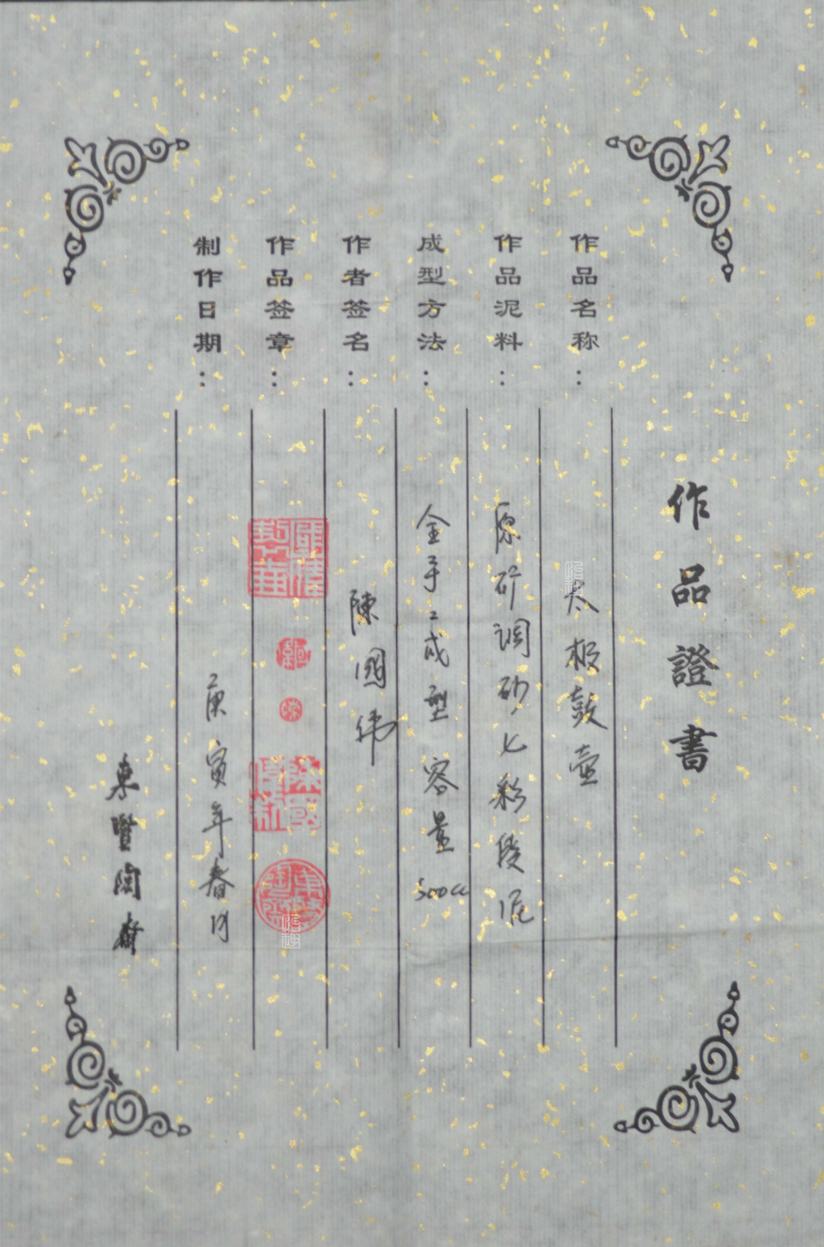 作品證書
作品名称：太极鼓壶
作品泥料：原矿调砂七彩段泥
成型方法：全手工成型 容量500cc
作者签名：陳國伟
作品签章：
制作日期：庚寅年春月
東賢陶齋